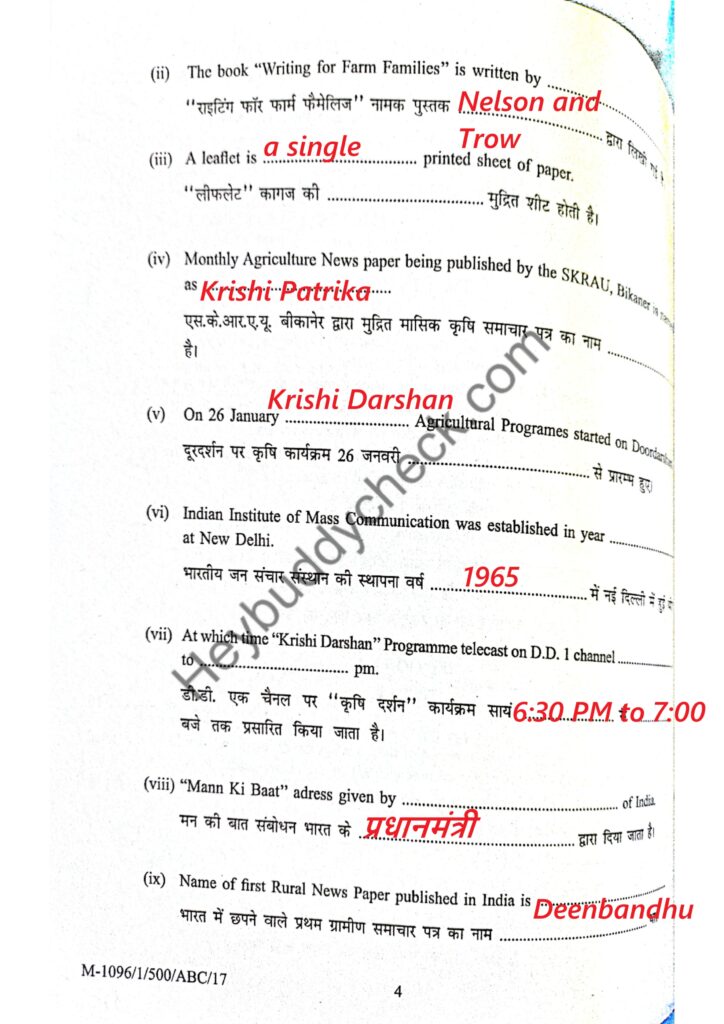 (ii) The book "Writing for Farm Families" is written by ..........
"राइटिंग फॉर फार्म फैमेलिज" नामक पुस्तक Nelson and .......... द्वारा लिखी गई है
Trow
(iii) A leaflet is a single .......... printed sheet of paper.
"लीफलेट" कागज की .......... मुद्रित शीट होती है।
(iv) Monthly Agriculture News paper being published by the SKRAU, Bikaner
as Krishi Patrika ..........
एस.के.आर.ए.यू. बीकानेर द्वारा मुद्रित मासिक कृषि समाचार पत्र का नाम ..........
है।
Krishi Darshan
(v) On 26 January .......... Agricultural Programes started on Doordarshan
दूरदर्शन पर कृषि कार्यक्रम 26 जनवरी .......... से प्रारम्भ हुए।
(vi) Indian Institute of Mass Communication was established in year ..........
at New Delhi.
भारतीय जन संचार संस्थान की स्थापना वर्ष 1965 .......... में नई दिल्ली में हुई
(vii) At which time "Krishi Darshan" Programme telecast on D.D. 1 channel ..........
to .......... pm.
डी.डी. एक चैनल पर "कृषि दर्शन" कार्यक्रम सायं 6:30 PM to 7:00
बजे तक प्रसारित किया जाता है।
(viii) "Mann Ki Baat" adress given by .......... of India.
मन की बात संबोधन भारत के प्रधानमंत्री .......... द्वारा दिया जाता है।
(ix) Name of first Rural News Paper published in India is ..........
Deenbandhu
भारत में छपने वाले प्रथम ग्रामीण समाचार पत्र का नाम ..........
M-1096/1/500/ABC/17
4
Heybuddycheck.com